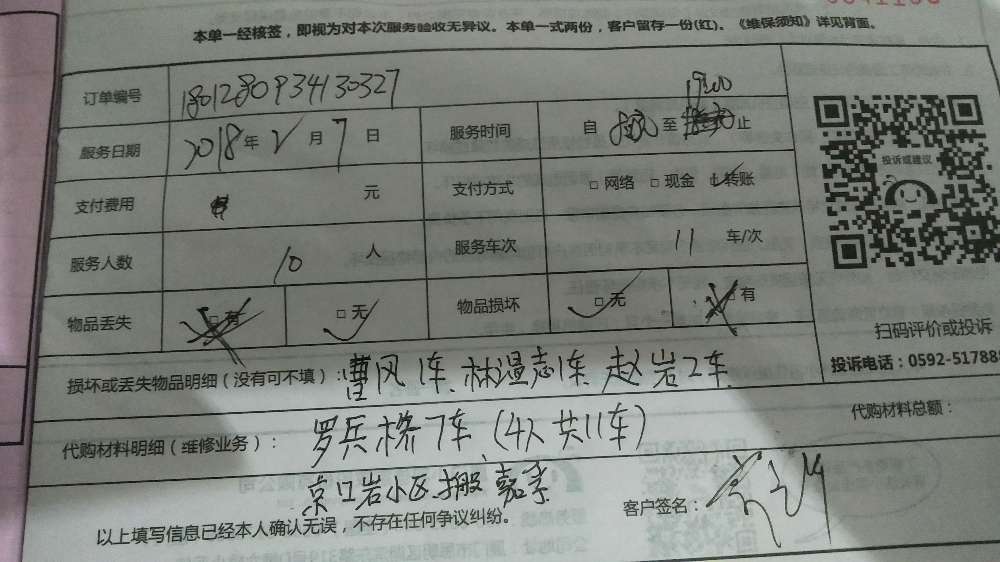 本单一经核签，即视为对本次服务验收无异议。本单一式两份，客户留存一份(红)。《维保须知》详见背面。
订单编号 1801280934130327
服务日期 2018年2月7日 服务时间 自 至 19:00 止
支付费用 元 支付方式 □网络 □现金 □转账
服务人数 10 人 服务车次 11 车/次
物品丢失 □有 □无 物品损坏 □无 □有
投诉或建议
扫码评价或投诉
投诉电话：0592-517888
损坏或丢失物品明细（没有可不填）：曹风1车、林温志1车、赵岩2车、
代购材料明细（维修业务）：罗兵桥7车、(4人共11车) 代购材料总额：
京口岩小区搬
客户签名：
以上填写信息已经本人确认无误，不存在任何争议纠纷。